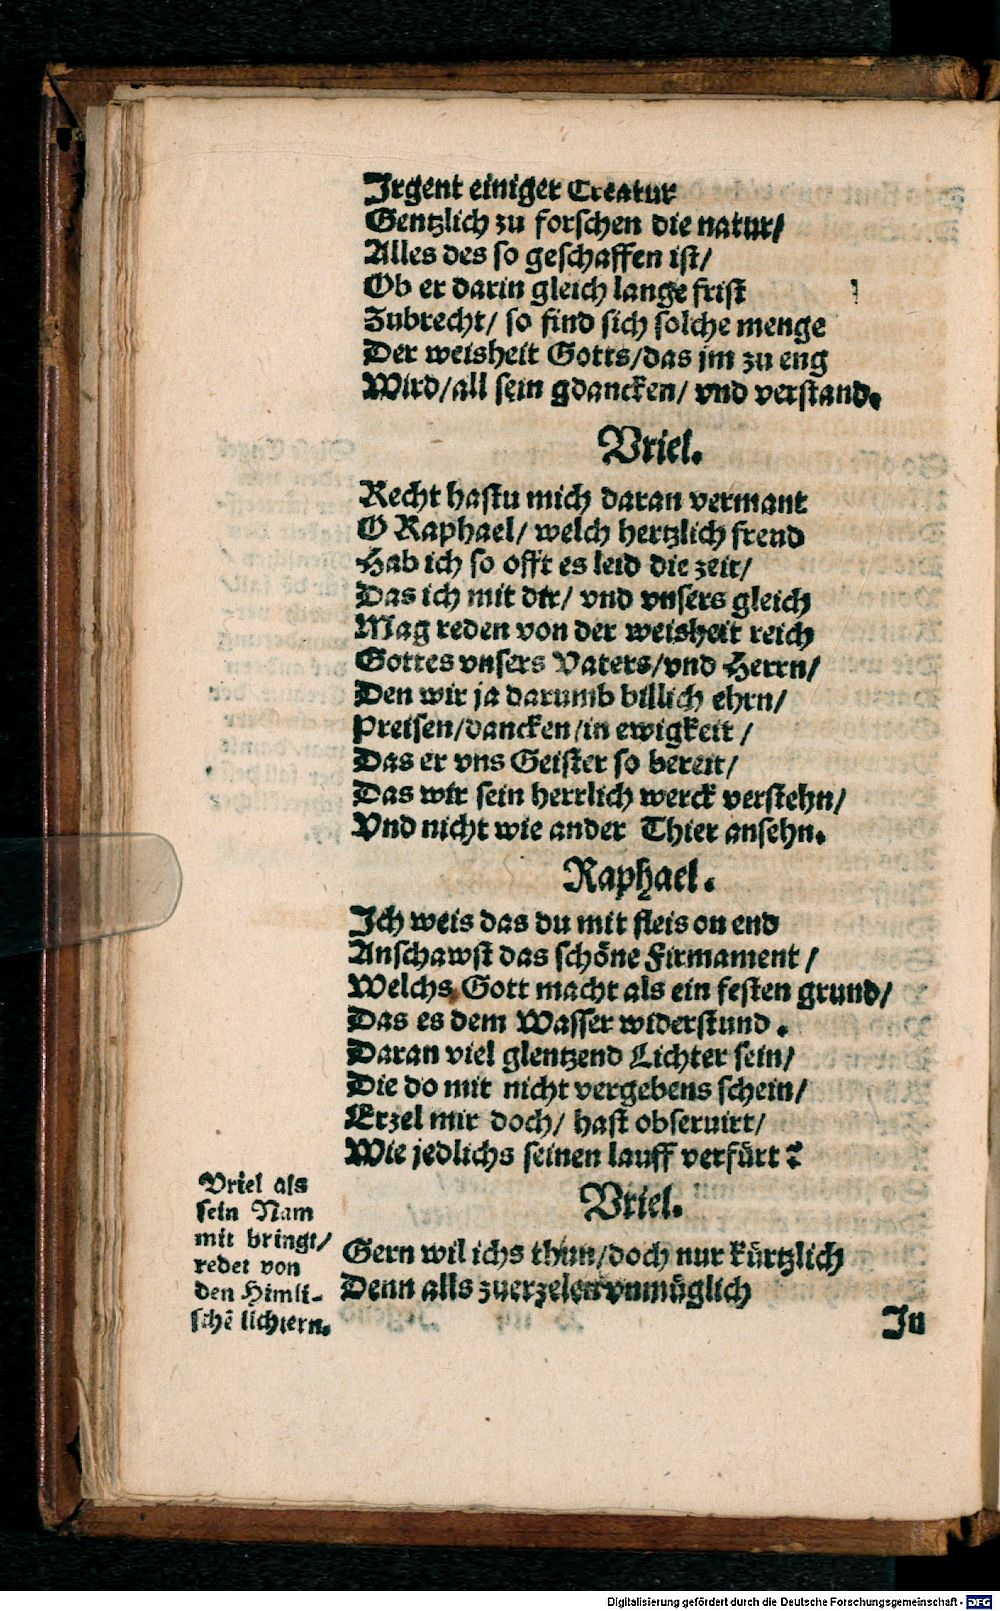 Irgent einiger Creatur
Gentzlich zu forschen die natur/
Alles des so geschaffen ist/
Ob er darin gleich lange frist
Zubrecht/ so find sich solche menge
Der weisheit Gotts/das jm zu eng
Wird/all sein gdancken/ vnd verstand.
Vriel.
Recht hastu mich daran vermant
O Raphael/ welch hertzlich freud
Hab ich so offt es leid die zeit/
Das ich mit dir/ vnd vnsers gleich
Mag reden von der weisheit reich
Gottes vnsers Vaters/vnd Herrn/
Den wir ja darumb billich ehrn/
Preisen/dancken/in ewigkeit/
Das er vns Geister so bereit/
Das wir sein herrlich werck verstehn/
Vnd nicht wie ander Thier ansehn.
Raphael.
Ich weis das du mit fleis on end
Anschawst das schöne Firmament/
Welchs Gott macht als ein festen grund/
Das es dem Wasser widerstund.
Daran viel glentzend Lichter sein/
Die do mit nicht vergebens schein/
Erzel mir doch/ hast obseruirt/
Wie jedlichs seinen lauff verfürt?
Vriel.
Gern wil ichs thun/doch nur kürtzlich
Denn alls zuerzelen vnmüglich
In
Vriel als
sein Nam
mit bringt/
redet von
den Himli-
schē lichtern.
Digitalisierung gefördert durch die Deutsche Forschungsgemeinschaft - DFG